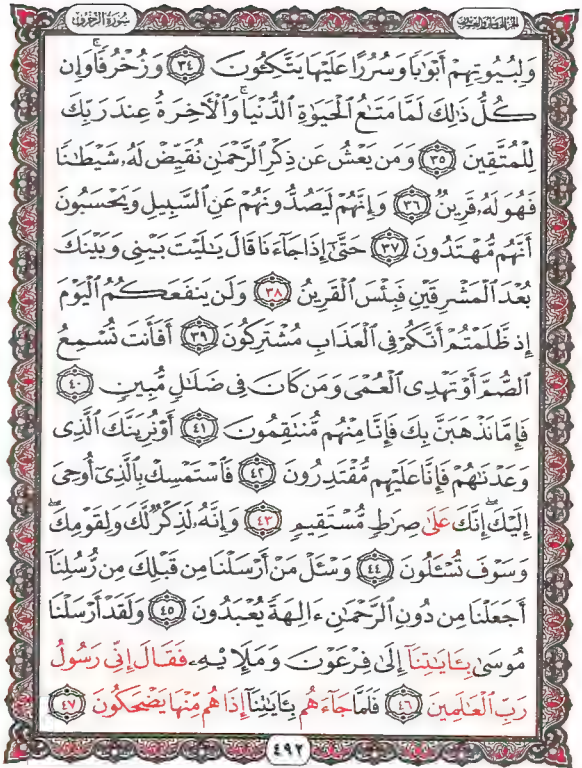 سُورَةُ الزُّخْرُفِ
وَلِبُيُوتِهِمْ أَبْوَٰبًا وَسُرُرًا عَلَيْهَا يَتَّكِـُٔونَ ٣٤ وَزُخْرُفًا ۚ وَإِن
كُلُّ ذَٰلِكَ لَمَّا مَتَٰعُ الْحَيَوٰةِ الدُّنْيَا ۚ وَالْآخِرَةُ عِندَ رَبِّكَ
لِلْمُتَّقِينَ ٣٥ وَمَن يَعْشُ عَن ذِكْرِ الرَّحْمَٰنِ نُقَيِّضْ لَهُۥ شَيْطَٰنًا
فَهُوَ لَهُۥ قَرِينٌ ٣٦ وَإِنَّهُمْ لَيَصُدُّونَهُمْ عَنِ السَّبِيلِ وَيَحْسَبُونَ
أَنَّهُم مُّهْتَدُونَ ٣٧ حَتَّىٰٓ إِذَا جَآءَنَا قَالَ يَٰلَيْتَ بَيْنِى وَبَيْنَكَ
بُعْدَ الْمَشْرِقَيْنِ فَبِئْسَ الْقَرِينُ ٣٨ وَلَن يَنفَعَكُمُ الْيَوْمَ
إِذ ظَّلَمْتُمْ أَنَّكُمْ فِى الْعَذَابِ مُشْتَرِكُونَ ٣٩ أَفَأَنتَ تُسْمِعُ
الصُّمَّ أَوْ تَهْدِى الْعُمْىَ وَمَن كَانَ فِى ضَلَٰلٍ مُّبِينٍ ٤٠
فَإِمَّا نَذْهَبَنَّ بِكَ فَإِنَّا مِنْهُم مُّنتَقِمُونَ ٤١ أَوْ نُرِيَنَّكَ الَّذِى
وَعَدْنَٰهُمْ فَإِنَّا عَلَيْهِم مُّقْتَدِرُونَ ٤٢ فَاسْتَمْسِكْ بِالَّذِىٓ أُوحِىَ
إِلَيْكَ ۖ إِنَّكَ عَلَىٰ صِرَٰطٍ مُّسْتَقِيمٍ ٤٣ وَإِنَّهُۥ لَذِكْرٌ لَّكَ وَلِقَوْمِكَ ۖ
وَسَوْفَ تُسْـَٔلُونَ ٤٤ وَسْـَٔلْ مَنْ أَرْسَلْنَا مِن قَبْلِكَ مِن رُّسُلِنَآ
أَجَعَلْنَا مِن دُونِ الرَّحْمَٰنِ ءَالِهَةً يُعْبَدُونَ ٤٥ وَلَقَدْ أَرْسَلْنَا
مُوسَىٰ بِـَٔايَٰتِنَآ إِلَىٰ فِرْعَوْنَ وَمَلَإِي۟هِۦ فَقَالَ إِنِّى رَسُولُ
رَبِّ الْعَٰلَمِينَ ٤٦ فَلَمَّا جَآءَهُم بِـَٔايَٰتِنَآ إِذَا هُم مِّنْهَا يَضْحَكُونَ ٤٧
٤٩٢